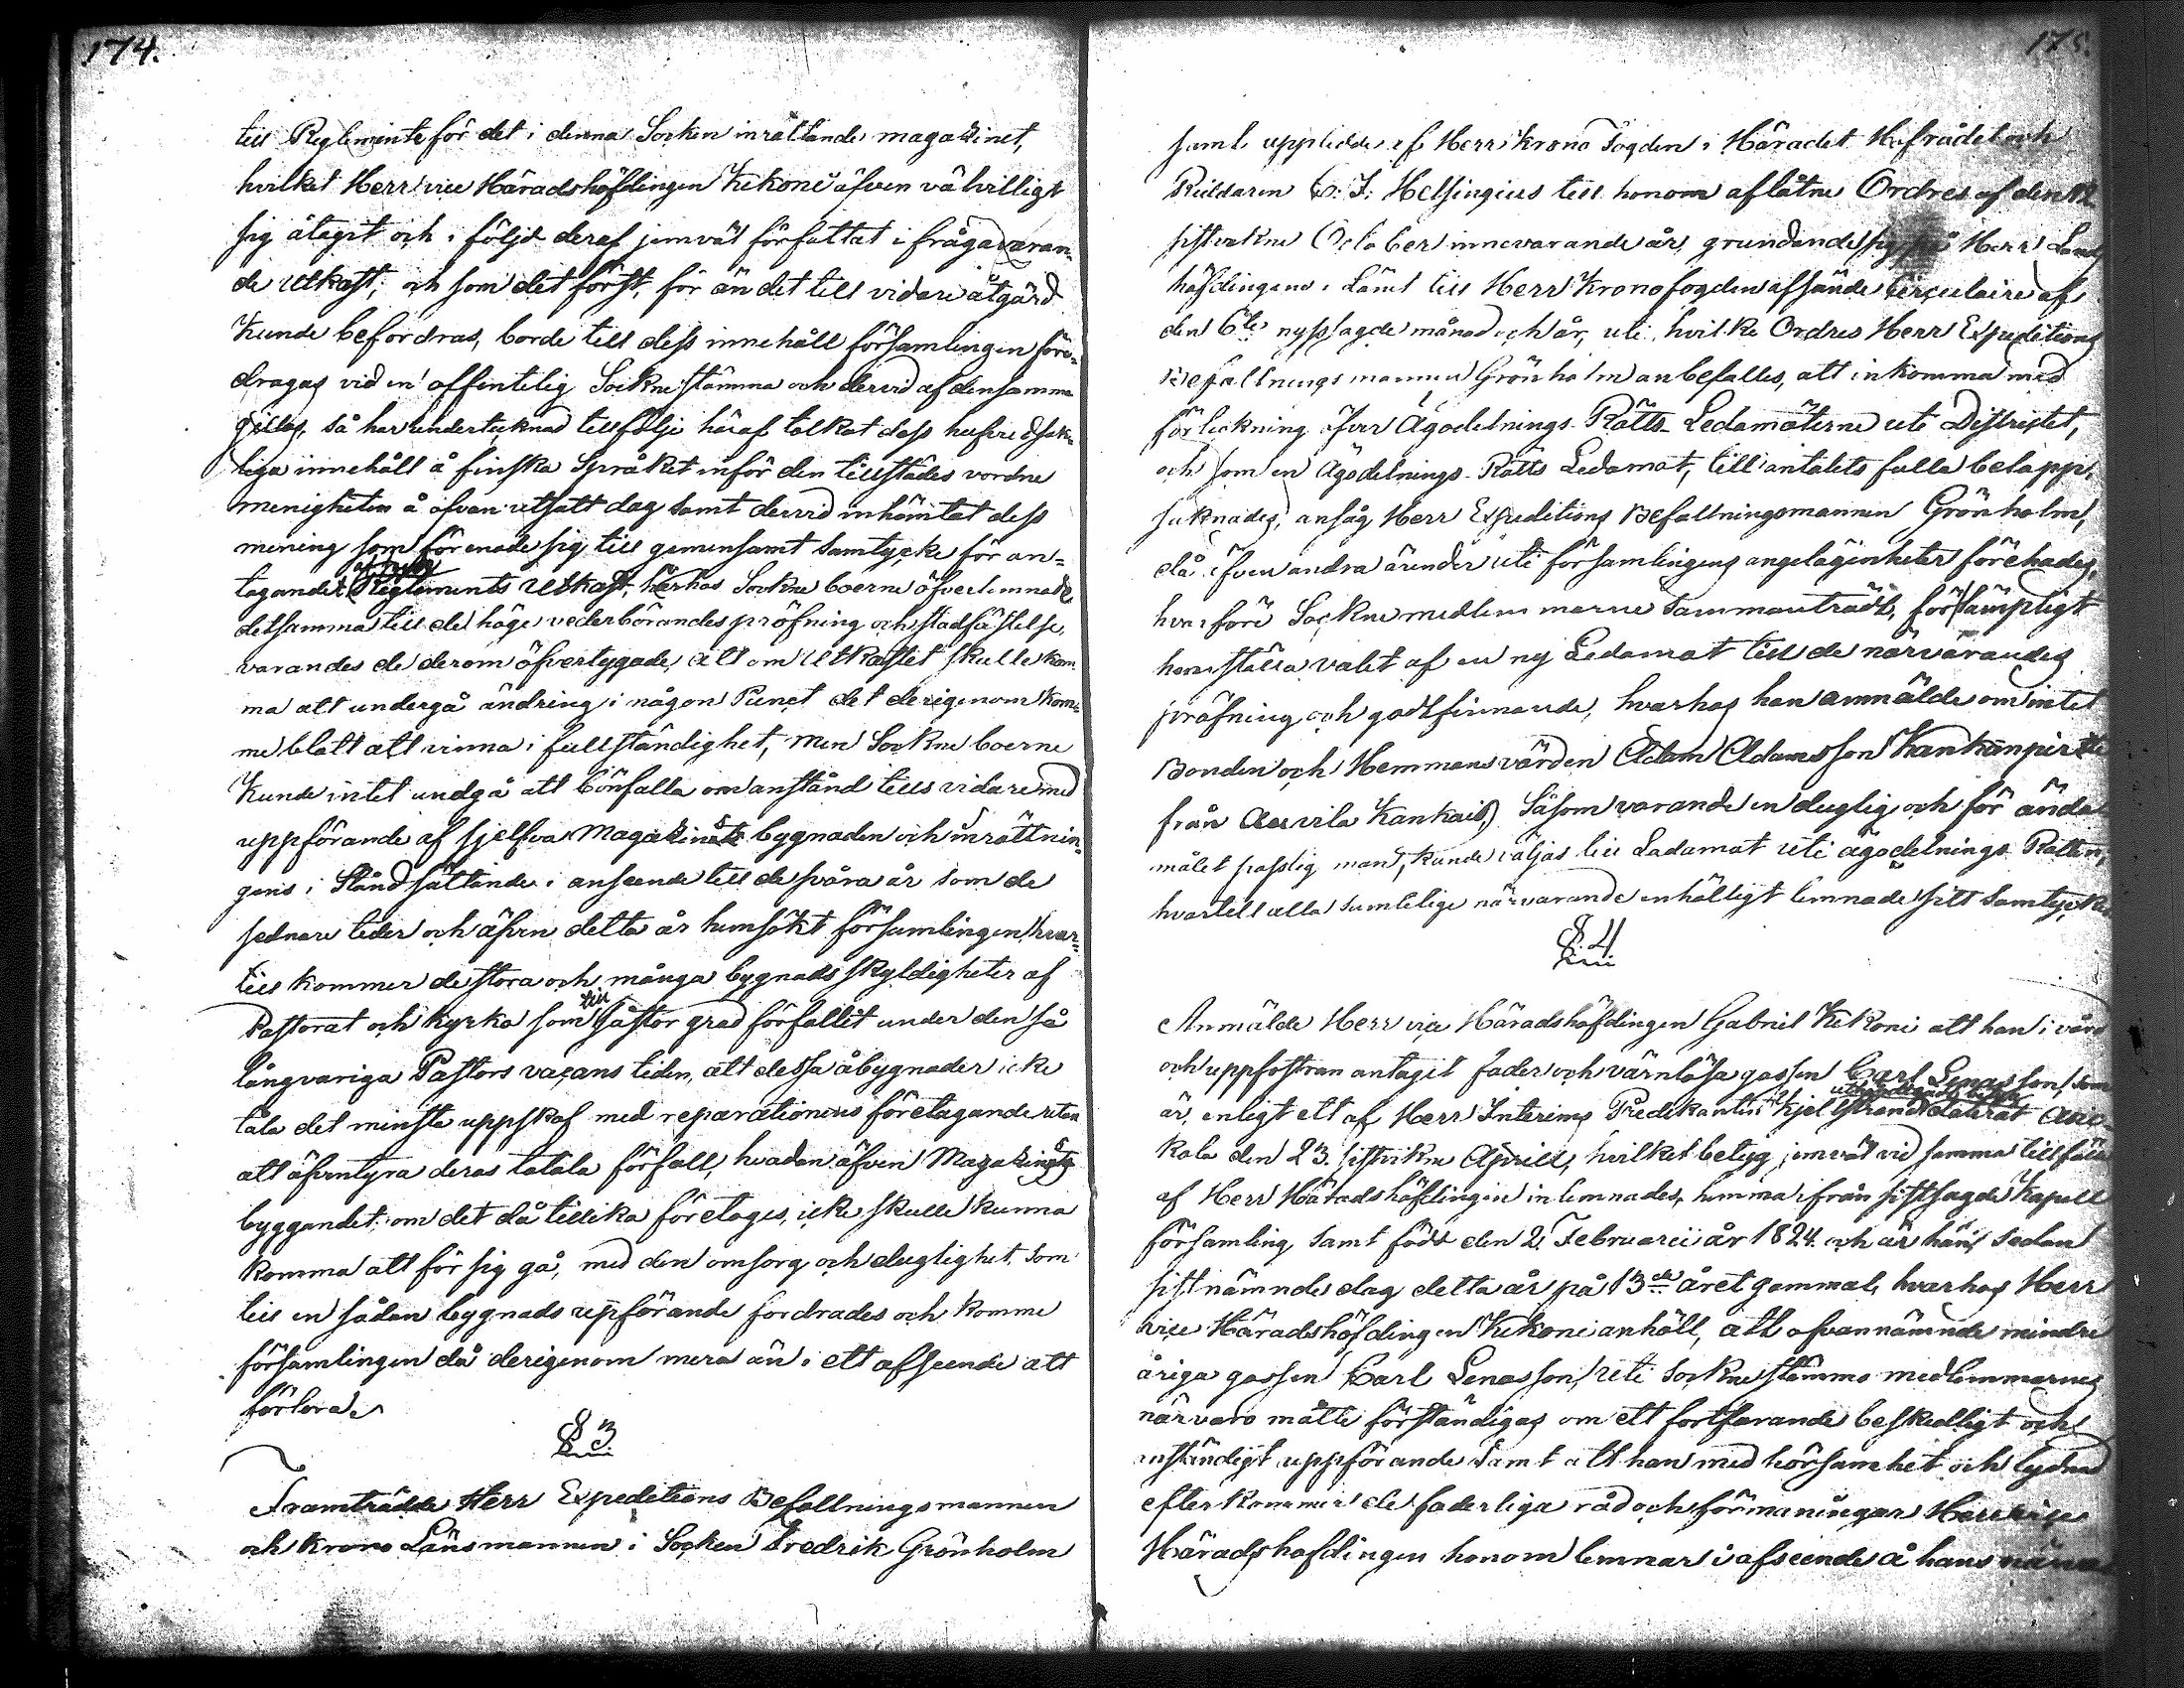 174.
till Reglemente för det i denna Socken inrättande magazinet,
hvilket Herr vice Häradshöfdingen Kekoni äfven välvilligt
sig åtagit och i följd deraf jemväl författat i fråga varan-
de Utkast; och som det först, för än det till vidare åtgärd
Kunde befordras, borde till dess innehåll församlingen före-
dragas vid en offentelig Sockne stämma och dervid af densamma
gillas, så har undertecknad tillfölje häraf tolkat dess hufvudsak-
liga innehåll å finska Språket inför den tillstädes vordne
menigheten å ofvan utsatt dag samt dervid inhämtat dess
mening som förenade sig till gemensamt samtycke för an-
tagandet Reglements Utkast, hvarhos Sockne boerne öfverlemnade
detsamma till de höge vederbörandes pröfning och stadfästelse,
varandes de derom öfvertygade, att om Utkastet skulle kom
ma att undergå ändring i någon Punct det derigenom kom-
me blott att vinna i fullständighet, men Sockne boerne
Kunde intet undgå att bönfalla om anstånd tills vidare med
uppförande af sjelfva Magazins bygnaden och inrättnin-
gens i Stånd sättande i anseende till de svåra år som de
sednare tider och äfven detta år hemsökt församlingen, hvar-
till kommer de stora och många bygnads skyldigheter af
Pastorat och kyrka som till så stor grad förfallit under den så
långvariga Pastors vacans tiden, att dessa åbygnader icke
tåla det minsta uppskof med reparationens företagande utan
att äfventyra deras totala förfall, hvadan äfven Magazins
byggandet om det då tillika företages, icke skulle kunna
komma att för sig gå, med den omsorg och duglighet, som
till en sådan bygnads upförande fordrades och komme
församlingen då derigenom mera än i ett afseende att
förlora.
§ 3
Framträdde Herr Expeditions Befallningsmannen
och krono Länsmannen i Socken Fredrik Grönholm
175.
samt upplädde af Herr Krono Fogden i Häradet Hofrådet och
Riddaren J. Helsingius till honom aflåtne Ordres af den 12
sistvikne October innevarande år, grundande sig på Herr Lands
höfdingens i Länet till Herr Kronofogden afsände Circulaire af
den 6te nyssagde månad och år, uti hvilke Ordres Herr Expeditions
Befallningsmannen Grönholm anbefalles, att inkomma med
förteckning öfver Ägodelnings-Rätts-Ledamöterne uti Districtet,
och som en Ägodelnings-Rätts Ledamot, till antalets fulla belopp,
saknades, ansåg Herr Expeditions Befallningsmannen Grönholm,
då äfven andra ärender uti församlingens angelägenheter förehades,
hvarföre Sockne medlemmarne sammanträdt, för lämpligt
hemställa valet af en ny Ledamot till de närvarandes
pröfning och godtfinnande, hvarhos han anmälde om intet
Bonden och Hemmans värden Adam Adamsson
från Auvila Kankais, Såsom varande en duglig och för ända
målet passlig man, kunde väljas till Ledamot uti ägodelnings Rätten,
hvartill alla samtelige närvarande enhälligt lemnade sitt samtycke
§ 4
Anmälde Herr vice Häradshöfdingen Gabriel Kekoni att han i vård
och uppfostran antagit fader och värnlösa gossen Carl Lenasson, som
är, enligt ett af Herr Interims Predikanten Kjellstrand daterat
den 23. sistvikne Aprill, hvilket betyg jemväl vid samma tillfälle
af Herr Häradshöfdingen inlemnades, hemma ifrån sistsagde Kapell
församling samt född den 2. Februarii år 1824. och är han, sedan
sistnämnde dag detta år på 13de året gammal, hvarhos Herr
vice Häradshöfdingen Kekoni anhöll, att ofvannämnde mindre
åriga gossen Carl Lenasson, uti Sockne stämmo medlemmarnes
närvaro måtte förständigas om ett fortfarande beskedligt och
anständigt uppförande samt att han med hörsamhet och lydnad
efterkommer de faderliga råd och förmaningar Herr vice
Häradshöfdingen honom lemnar i afseende å hans